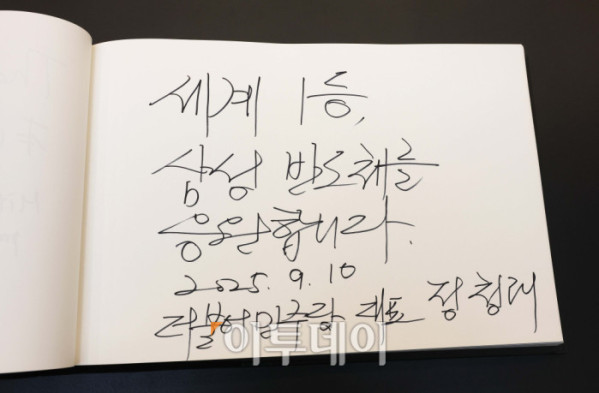 세계 1등,
삼성 반도체를
응원합니다.
2025. 9. 10
더불어민주당 대표 정청래
이투데이